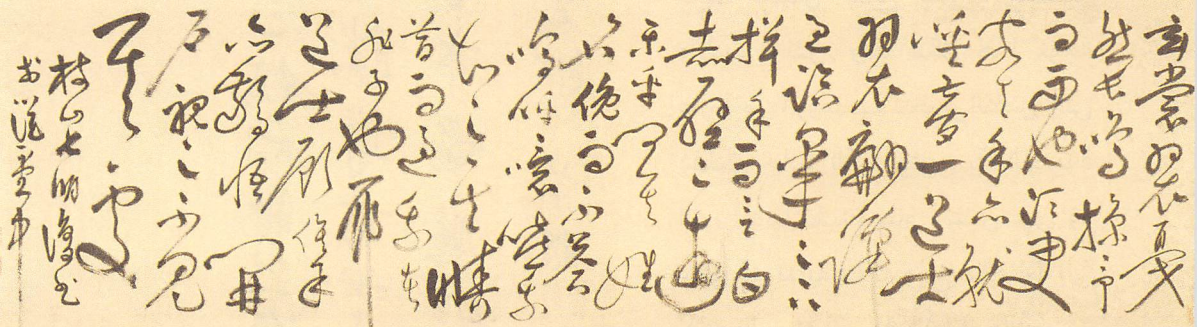 玄裳羽衣戛
然長鳴掠予
舟而西也須臾
客去予亦就
睡夢一道士
羽衣翩躚
過臨皋之下
揖予而言曰
赤壁之遊
樂乎問其姓
名俛而不答
嗚呼噫嘻我
知之矣疇
昔而過我者
非子也耶
道士顧笑予
亦驚悟開
戶視之不見
其處
枝山允明
堂中